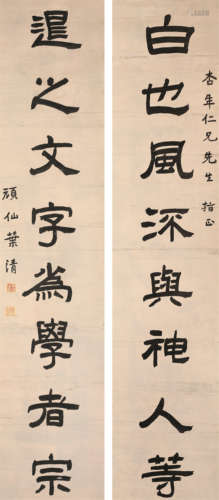 杏年仁兄先生指正
白也風深與神人等
退之文字為學者宗
頑仙葉清